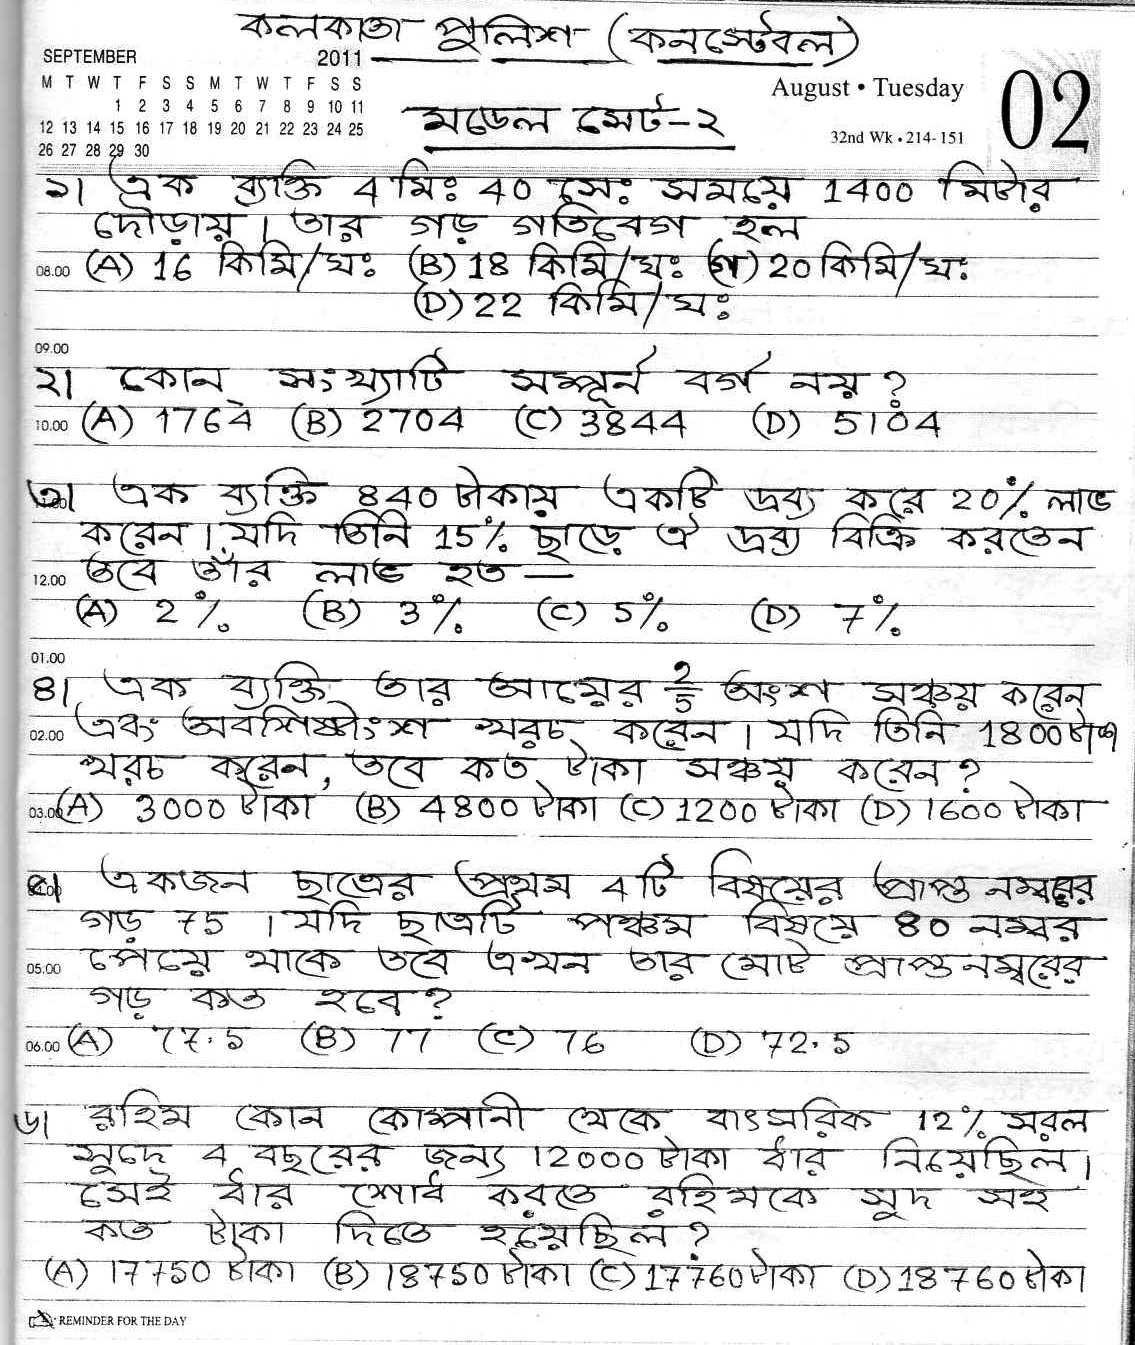 কলকাতা পুলিশ (কনস্টেবল)
SEPTEMBER 2011
M T W T F S S M T W T F S S
1 2 3 4 5 6 7 8 9 10 11
12 13 14 15 16 17 18 19 20 21 22 23 24 25
26 27 28 29 30
August • Tuesday 02
32nd Wk • 214-151
মডেল সেট-২
১। এক ব্যক্তি 4 মিঃ 40 সেঃ সময়ে 1400 মিটার
দৌড়ায়। তার গড় গতিবেগ হল
08.00 (A) 16 কিমি/ঘঃ (B) 18 কিমি/ঘঃ (গ) 20 কিমি/ঘঃ
(D) 22 কিমি/ঘঃ
09.00
২। কোন্ সংখ্যাটি সম্পূর্ন বর্গ নয়?
10.00 (A) 1764 (B) 2704 (C) 3844 (D) 5104
৩। এক ব্যক্তি 840 টাকায় একটি দ্রব্য করে 20% লাভ
করেন। যদি তিনি 15% ছাড়ে ঐ দ্রব্য বিক্রি করতেন
12.00 তবে তাঁর লাভ হত —
(A) 2% (B) 3% (C) 5% (D) 7%
01.00
৪। এক ব্যক্তি তার আয়ের 2/5 অংশ সঞ্চয় করেন
02.00 এবং অবশিষ্টাংশ খরচ করেন। যদি তিনি 1800 টাকা
খরচ করেন, তবে কত টাকা সঞ্চয় করেন?
03.00 (A) 3000 টাকা (B) 4800 টাকা (C) 1200 টাকা (D) 1600 টাকা
৫। একজন ছাত্রের প্রথম 4 টি বিষয়ের প্রাপ্ত নম্বরের
গড় 75। যদি ছাত্রটি পঞ্চম বিষয়ে 80 নম্বর
05.00 পেয়ে থাকে তবে এখন তার মোট প্রাপ্ত নম্বরের
গড় কত হবে?
06.00 (A) 77.5 (B) 77 (C) 76 (D) 72.5
৬। রহিম কোন কোম্পানী থেকে বাৎসরিক 12% সরল
সুদে 4 বছরের জন্য 12000 টাকা ধার নিয়েছিল।
সেই ধার শোধ করতে রহিমকে সুদ সহ
কত টাকা দিতে হয়েছিল?
(A) 17750 টাকা (B) 18750 টাকা (C) 17760 টাকা (D) 18760 টাকা
REMINDER FOR THE DAY